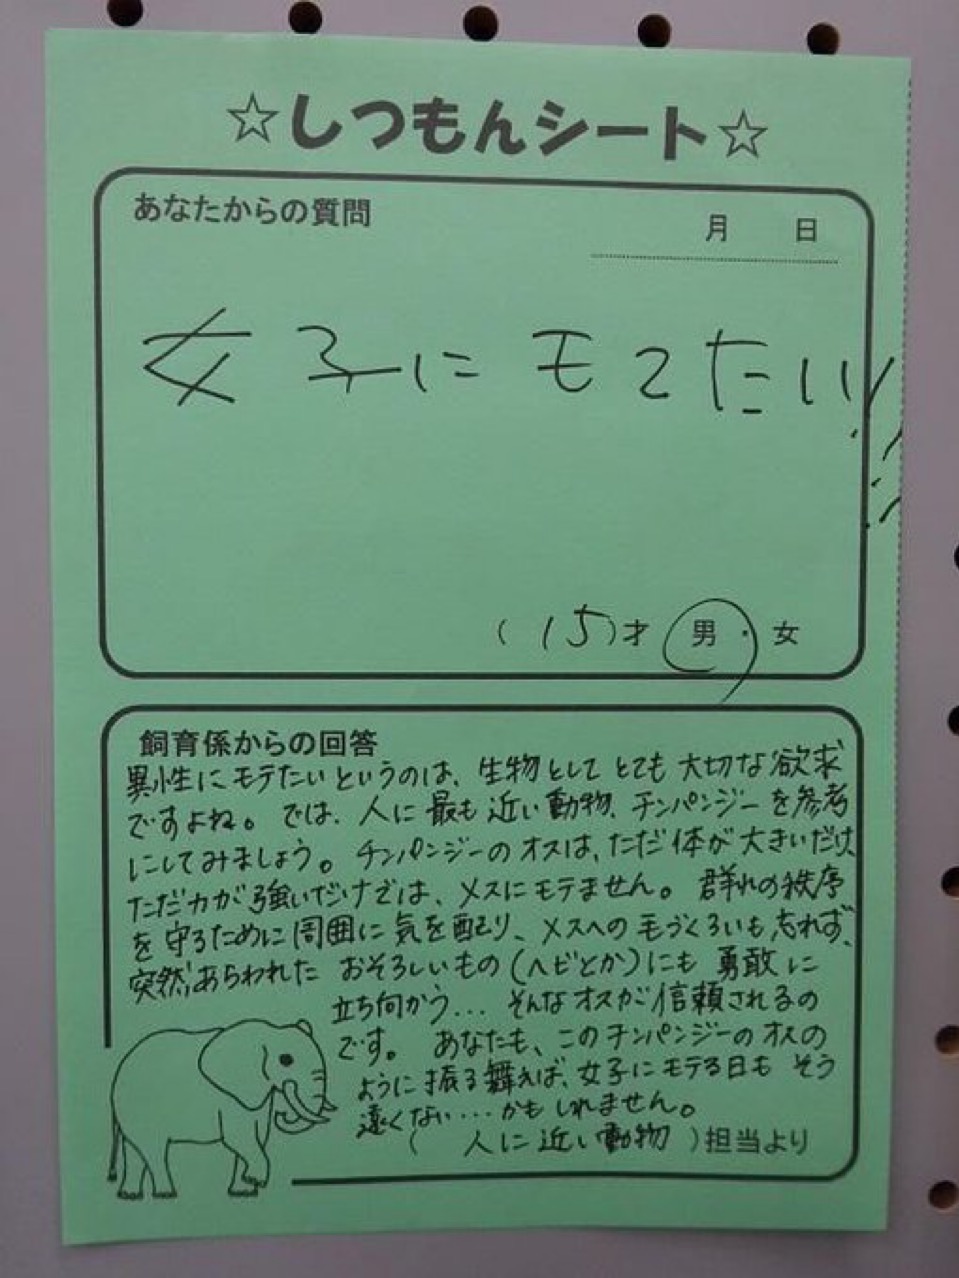 ☆しつもんシート☆
あなたからの質問
月 日
女子にモテたい!!!
(15)才 男・女
飼育係からの回答
異性にモテたいというのは、生物としてとても大切な欲求
ですよね。では、人に最も近い動物、チンパンジーを参考
にしてみましょう。チンパンジーのオスは、ただ体が大きいだけ、
ただ力が強いだけでは、メスにモテません。群れの秩序
を守るために周囲に気を配り、メスへの毛づくろいも忘れず、
突然あらわれたおそろしいもの(ヘビとか)にも勇敢に
立ち向かう...そんなオスが信頼されるの
です。あなたも、このチンパンジーのオスの
ように振る舞えば、女子にモテる日もそう
遠くない...かもしれません。
(人に近い動物)担当より